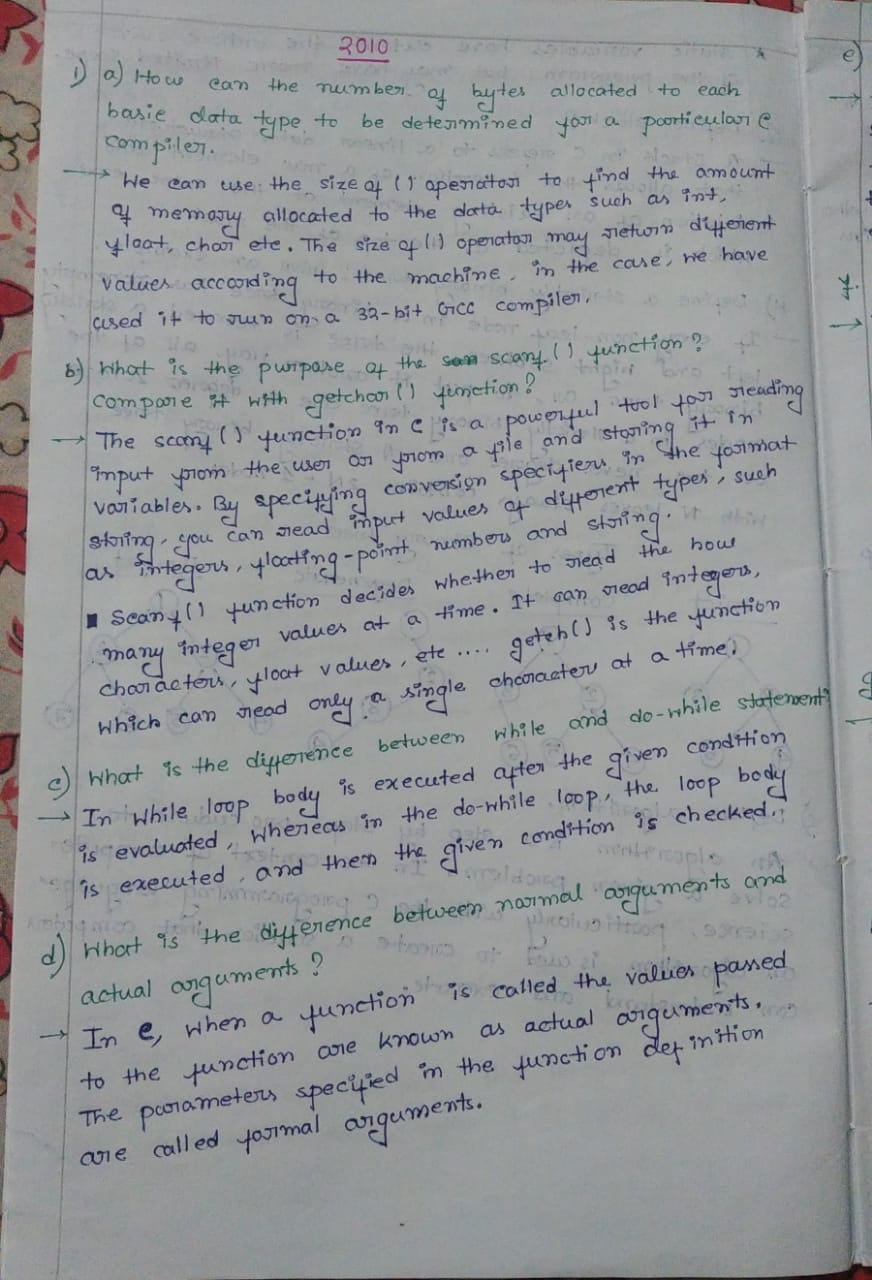 2010
1) a) How can the number of bytes allocated to each
basic data type to be determined for a particular C
compiler.
→ We can use the size of () operator to find the amount
of memory allocated to the data types such as int,
float, char etc. The size of () operator may return different
values according to the machine, in the case, we have
used it to run on a 32-bit GCC compiler.
b) What is the purpose of the scanf () function?
Compare it with getchar() function?
→ The scanf () function in C is a powerful tool for reading
input from the user or from a file and storing it in
variables. By specifying conversion specifiers in the format
string, you can read input values of different types, such
as integers, floating-point numbers and string.
Scanf () function decides whether to read the how
many integer values at a time. It can read integers,
characters, float values, etc .... getch() is the function
which can read only a single character at a time.
c) What is the difference between while and do-while statement?
→ In while loop body is executed after the given condition
is evaluated, whereas in the do-while loop, the loop body
is executed, and then the given condition is checked.
d) What is the difference between normal arguments and
actual arguments?
→ In C, when a function is called the values passed
to the function are known as actual arguments.
The parameters specified in the function definition
are called formal arguments.
e)
→
f.
→
g